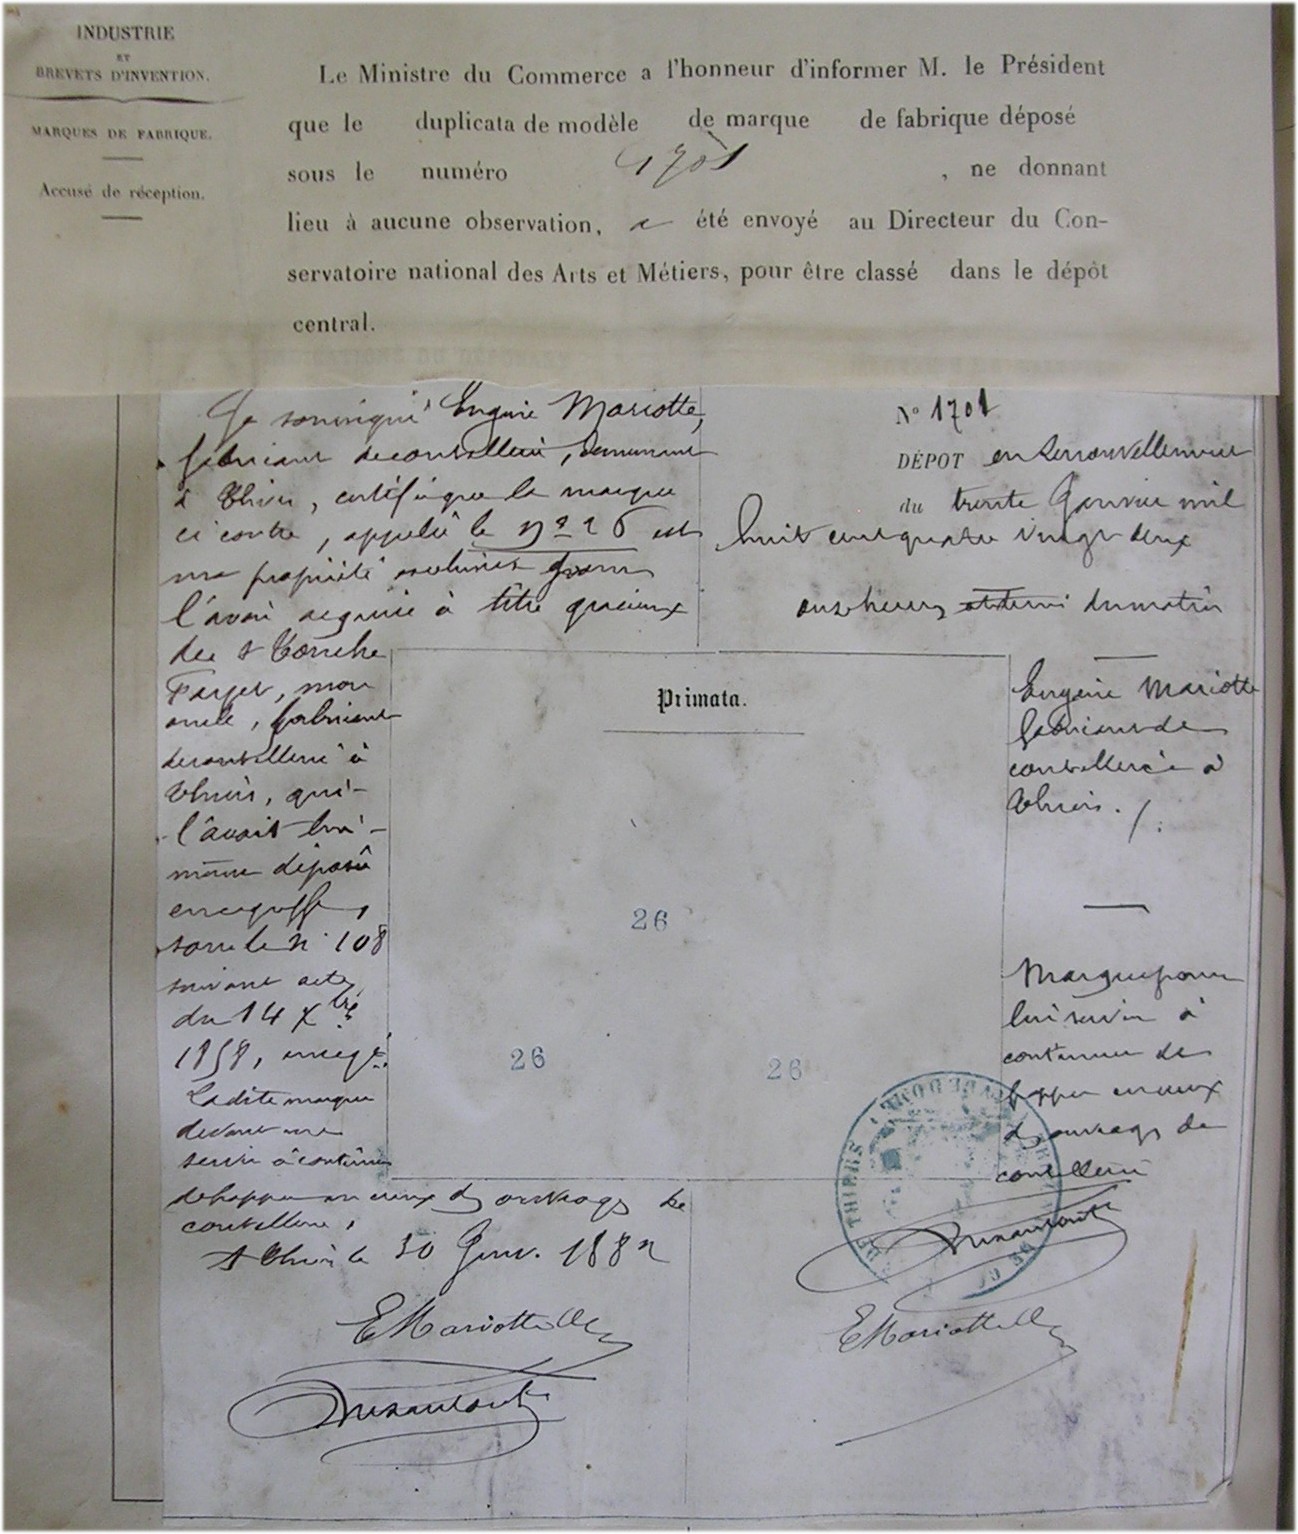 INDUSTRIE
ET
BREVETS D'INVENTION.
MARQUES DE FABRIQUE.
Accusé de réception.
Le Ministre du Commerce a l'honneur d'informer M. le Président
que le duplicata de modèle de marque de fabrique déposé
sous le numéro 1701 , ne donnant
lieu à aucune observation, a été envoyé au Directeur du Con-
servatoire national des Arts et Métiers, pour être classé dans le dépôt
central.
Je soussigné Eugène Mariotte,
fabricant de coutellerie, demeurant
à Thiers, certifie que la marque
ci contre, appelée le nº 26 est
ma propriété exclusive pour
l'avoir acquise à titre gracieux
de
Farget, mon
oncle, fabricant
de coutellerie à
Thiers, qui
l'avait lui
même déposée
en ce greffe,
sous le n° 108
suivant acte
du 14 Xbre
1858, enregé.
Ladite marque
devant me
servir à continuer
de frapper en creux des ouvrages de
coutellerie.
A Thiers le 30 Janv. 1882
E Mariotte
Nº 1701
DÉPOT en renouvellement
du trente Janvier mil
huit cent quatre vingt deux
onze heures et demi du matin
Primata.
26
26
26
Eugène Mariotte
fabricant de
coutellerie à
Thiers.
Marque pour
lui servir à
continuer de
frapper en creux
des ouvrages de
coutellerie
DE THIERS
E Mariotte